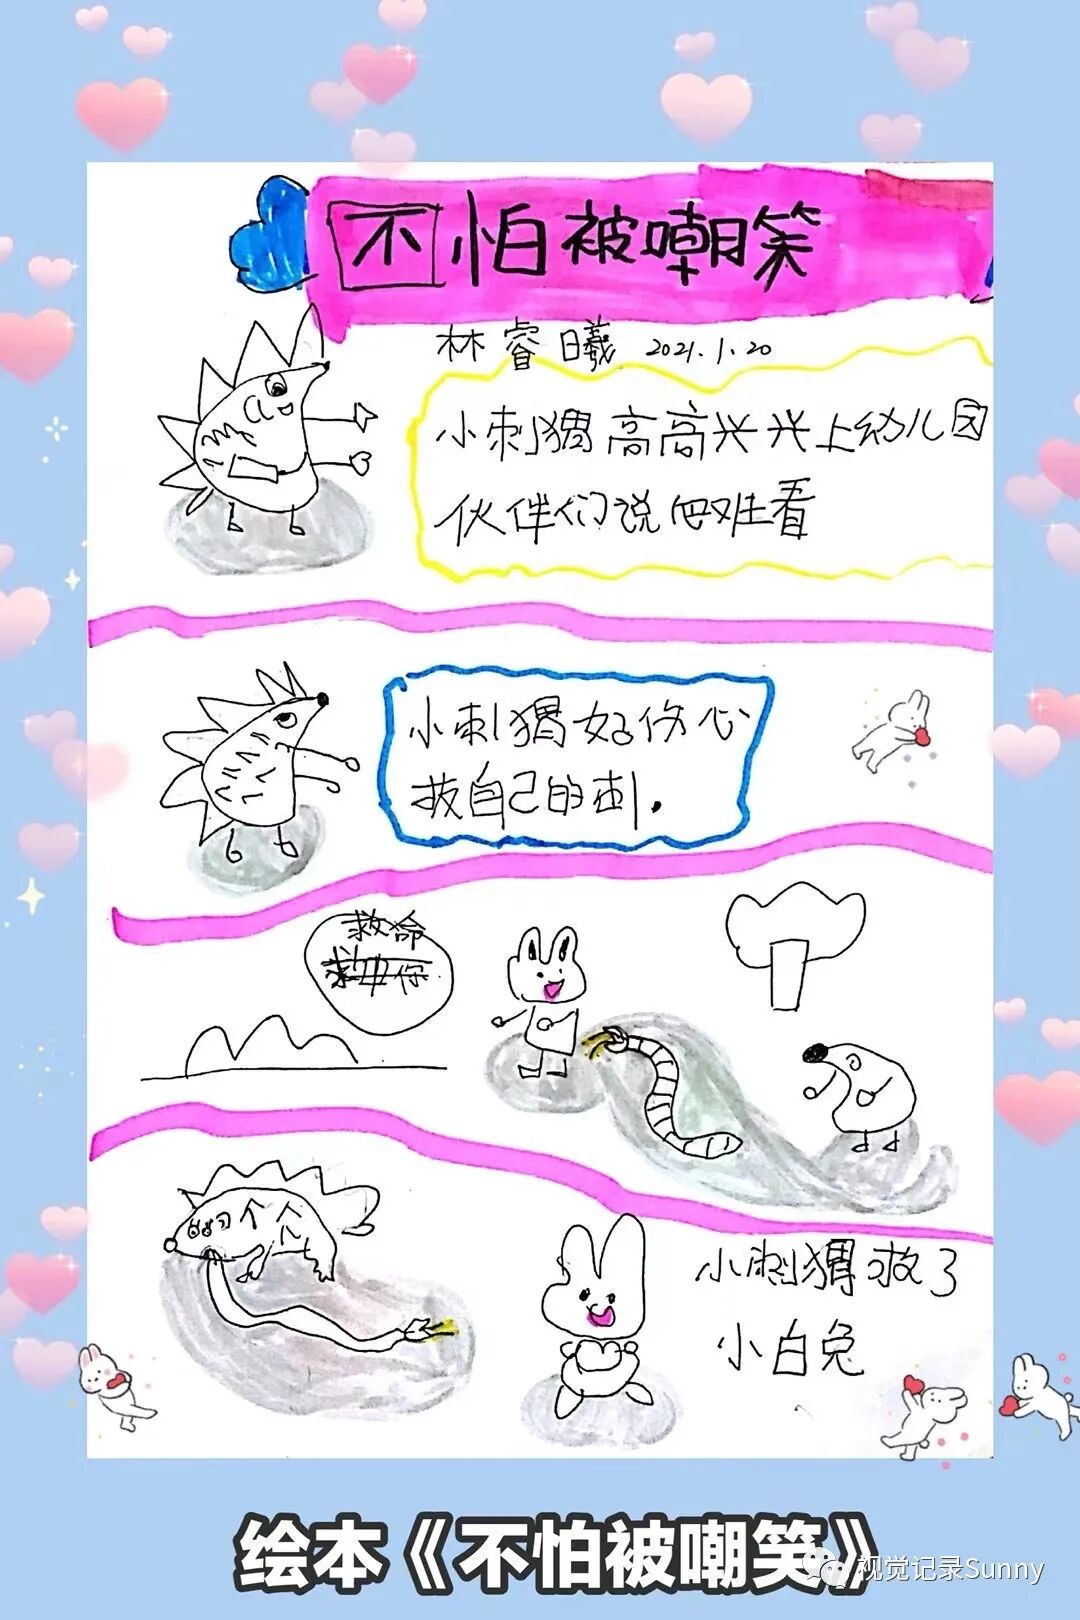 不怕被嘲笑
林睿曦 2021.1.20
小刺猬高高兴兴上幼儿园
伙伴们说它难看
小刺猬好伤心
拔自己的刺.
救命
小刺猬救了
小白兔
绘本《不怕被嘲笑》
视觉记录Sunny